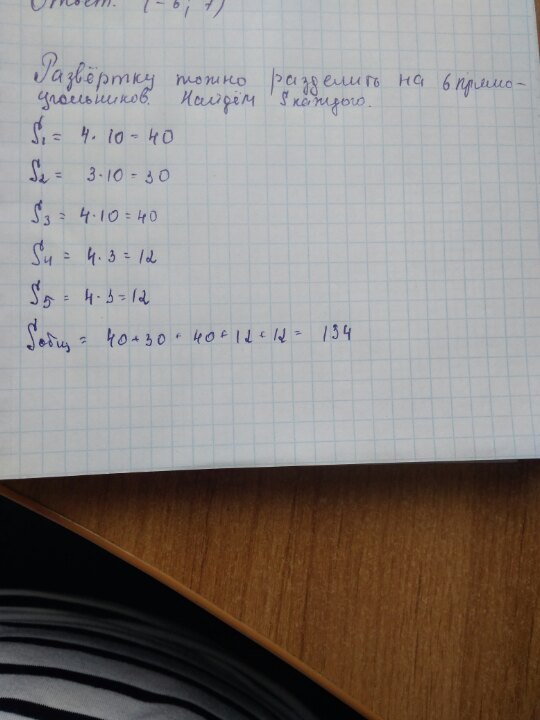 Ответ: (-6; 7)
Развёртку можно разделить на 6 прямо-
угольников. Найдём S каждого.
S₁ = 4 · 10 = 40
S₂ = 3 · 10 = 30
S₃ = 4 · 10 = 40
S₄ = 4 · 3 = 12
S₅ = 4 · 3 = 12
Sобщ = 40 + 30 + 40 + 12 + 12 = 134